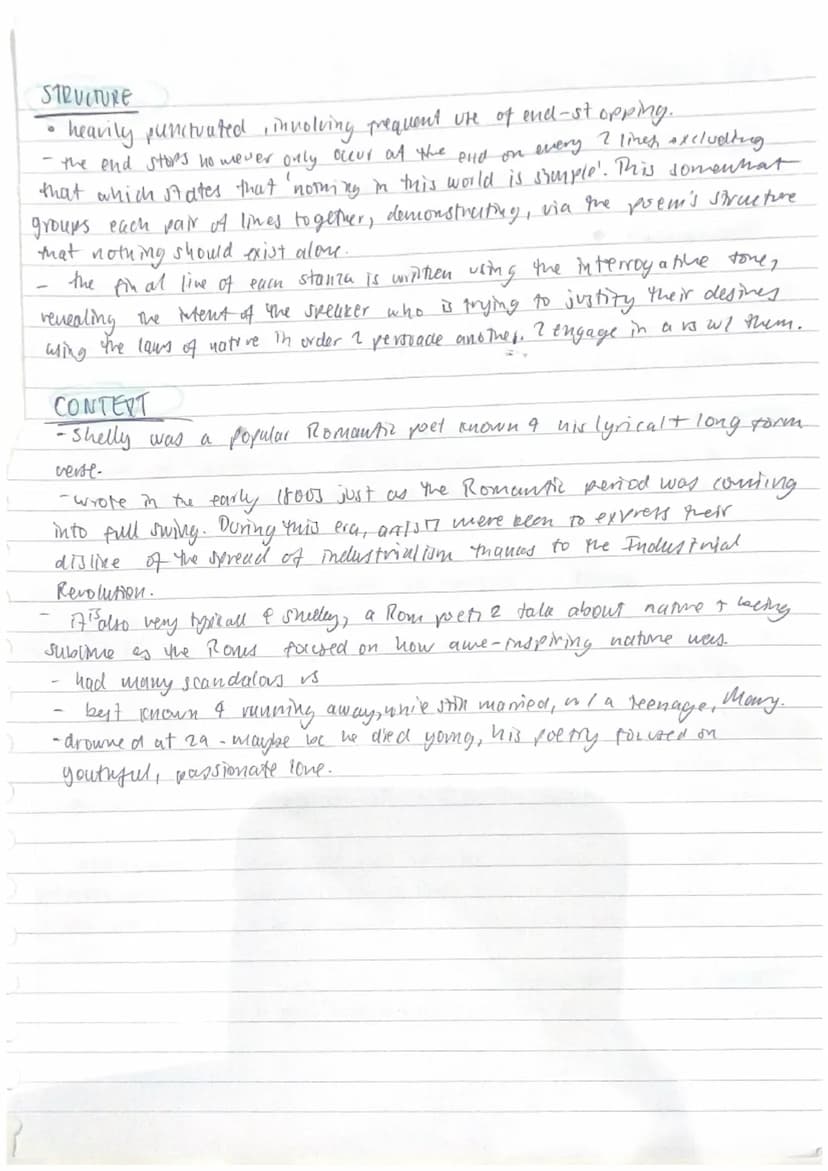 STRUCTURE
• heavily punctuated, involving frequent use of end-stopping.
- the end stops however only occur at the end on every 2 lines, excluding
that which states that 'nothing in this world is simple'. This somewhat
groups each pair of lines together, demonstrating, via the poem's structure
that nothing should exist alone.
- the final line of each stanza is written using the interrogative tone,
revealing the intent of the speaker who is trying to justify their desires
using the laws of nature in order 2 persuade another, 2 engage in a rs w/ them.
CONTEXT
- Shelly was a popular Romantic poet known 4 his lyrical + long form
verse.
- wrote in the early 1800s just as the Romantic period was coming
into full swing. During this era, artists were keen to express their
dislike of the spread of industrialism thanks to the Industrial
Revolution.
- it is also very typical 4 Shelley, a Rom poet, 2 talk about nature + being
sublime as the Roms focused on how awe-inspiring nature was.
- had many scandalous rs
- best known 4 running away, while still married, w/ a teenage, Mary.
- drowned at 29 - maybe bc he died young, his poetry focused on
youthful, passionate love.